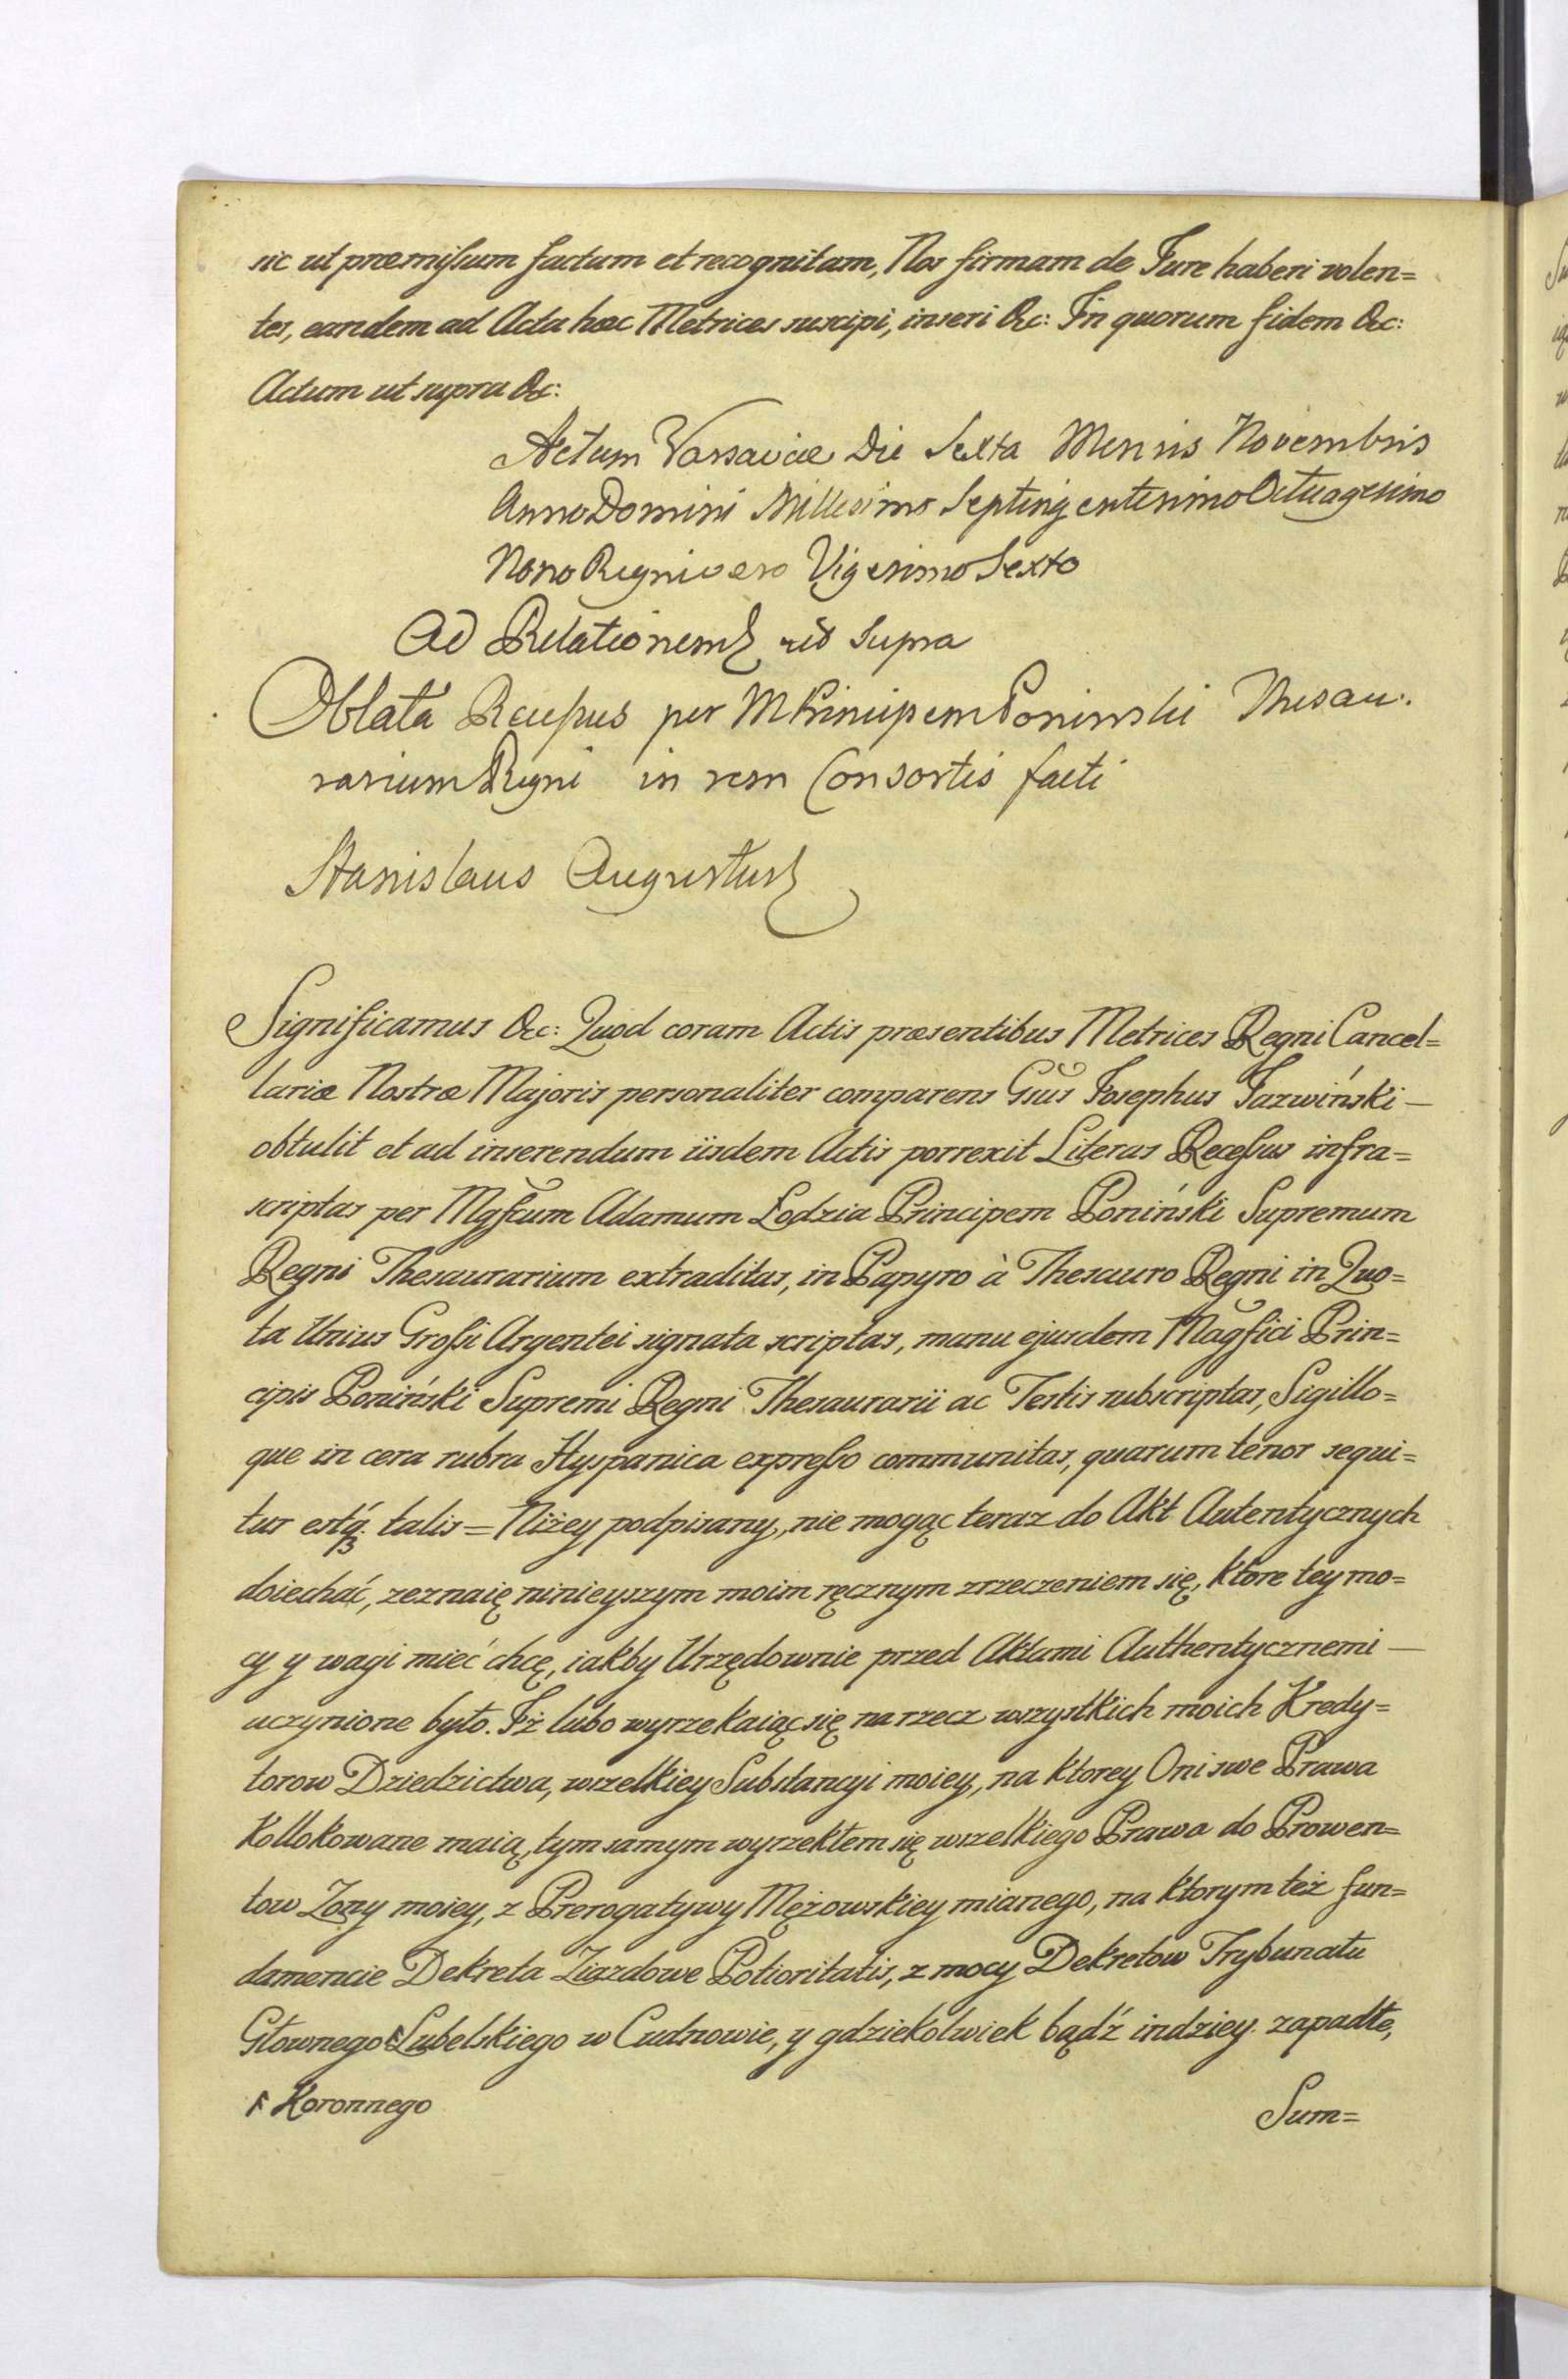 sic ut præmissum factum et recognitam, Nos firmam de Jure haberi volen=
tes, eandem ad Acta hæc Metrices suscipi, inseri &c: In quorum fidem &c:
Actum ut supra &c:
Actum Varsaviæ Die Sexta Mensis Novembris
Anno Domini Millesimo Septingentesimo Octuagesimo
Nono Regni vero Vigesimo Sexto
Ad Relationem ut Supra
Oblata Recessus per M Principem Poninski Thesau:
rarium Regni in rem Consortis facti
Stanislaus Augustus
Significamus &c: Quod coram Actis præsentibus Metrices Regni Cancel=
lariæ Nostræ Majoris personaliter comparens Gsus Josephus Jazwiński —
obtulit et ad inserendum iisdem Actis porrexit Literas Recessus infra=
scriptas per Mgfcum Adamum Łodzia Principem Poniński Supremum
Regni Thesaurarium extraditas, in Papyro à Thesauro Regni in Quo=
ta Unius Grossi Argentei signata scriptas, manu ejusdem Magfici Prin=
cipis Poniński Supremi Regni Thesaurarii ac Testis subscriptas, Sigillo=
que in cera rubra Hyspanica expresso communitas, quarum tenor sequi=
tur estq3 talis = Niżey podpisany, nie mogąc teraz do Akt Autentycznych
doiechać, zeznaię ninieyszym moim ręcznym zrzeczeniem się, ktore tey mo=
cy y wagi mieć chcę, iakby Urzędownie przed Aktami Authentycznemi —
uczynione było. Iż lubo wyrzekaiąc się na rzecz wszystkich moich Kredy=
torow Dziedzictwa, wszelkiey Substancyi moiey, na ktorey Oni swe Prawa
Kollokowane maią, tym samym wyrzekłem się wszelkiego Prawa do Prowen=
tow Żony moiey, z Prerogatywy Mężowskiey mianego, na ktorym też fun=
damencie Dekreta Ziazdowe Potioritatis, z mocy Dekretow Trybunału
Głownego Lubelskiego w Cudnowie, y gdziekolwiek bądź indziey zapadłe,
Koronnego
Sum=